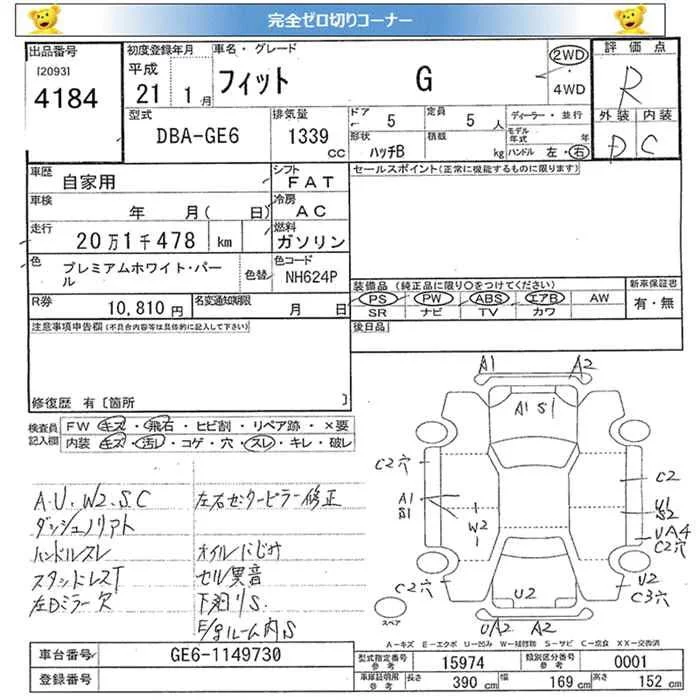 完全ゼロ切りコーナー
出品番号
[2093]
4184
初度登録年月
平成
21 1月
車名・グレード
フィット G
2WD
・
4WD
評価点
R
外装 内装
D C
型式
DBA-GE6
排気量
1339
cc
ドア 5
定員 5 人
形状 ハッチB
積載 kg
ディーラー・並行
モデル年式 年
ハンドル 左・右
車歴
自家用
シフト
FAT
車検
年 月( 日)
冷房
AC
走行
20万1千478 km
燃料
ガソリン
色
プレミアムホワイト・パール
色替
色コード
NH624P
R券
10,810円
名変通知期限
月 日
セールスポイント(正常に機能するものに限ります)
装備品 (純正品に限り○をつけてください)
PS PW ABS エアB AW
SR ナビ TV カワ
新車保証書
有・無
後日品
注意事項申告欄(不具合内容等は具体的に記入して下さい)
修復歴 有[箇所 ]
検査員
記入欄
FW キズ・飛石・ヒビ割・リペア跡・×要
内装 キズ・汚レ・コゲ・穴・スレ・キレ・破レ
A.U.W2.S.C
ハンドルスレ
左Dミラー欠
左右センターピラー修正
オイルにじみ
セル異音
下廻りS
E/gルーム内S
A1 A2
A1 S1
C2穴
A1
S1
W2
C2
U1
S2
UA4
C2穴
C2穴
U2
U2
C3穴
UA2 A2
スペア
A-キズ E-エクボ U-凹み W-補修跡 S-サビ C-腐食 XX-交換済
車台番号
GE6-1149730
登録番号
型式指定番号 15974
類別区分番号 0001
車庫証明用参考
長さ 390 cm
幅 169 cm
高さ 152 cm